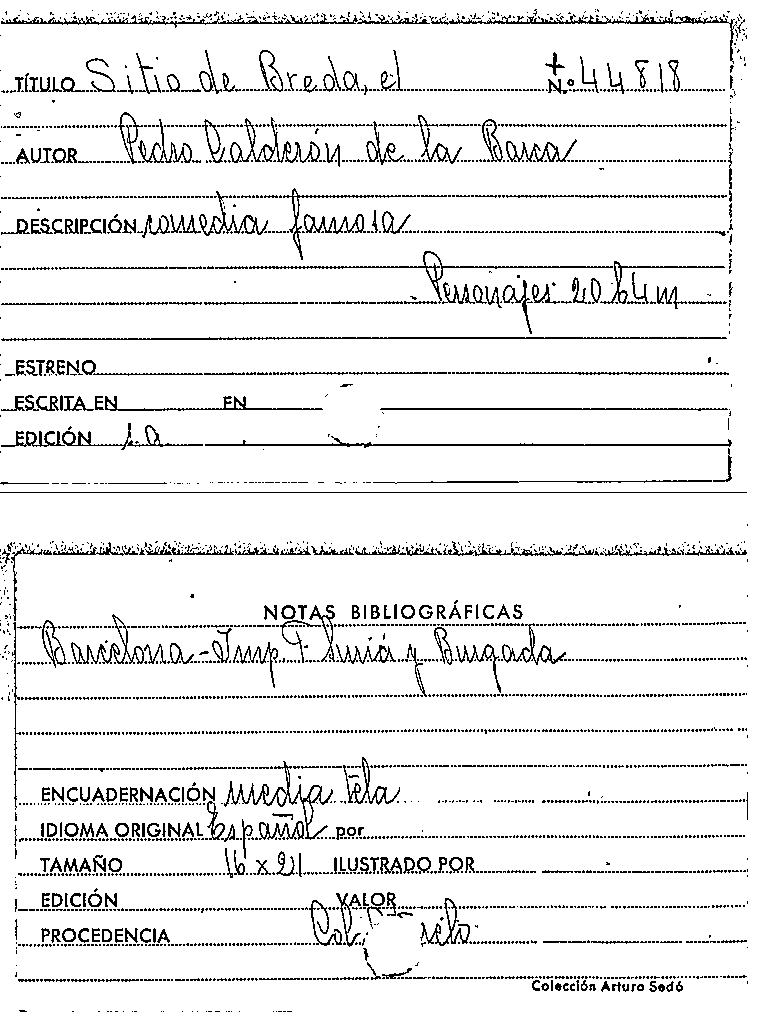 TÍTULO Sitio de Breda, el + N.º 44818
AUTOR Pedro Calderón de la Barca
DESCRIPCIÓN comedia famosa
Personajes 20 h 4 m
ESTRENO
ESCRITA EN EN
EDICIÓN s.a
NOTAS BIBLIOGRÁFICAS
Barcelona - Imp F. Suriá y Burgada
ENCUADERNACIÓN media tela
IDIOMA ORIGINAL Español por
TAMAÑO 16 x 21 ILUSTRADO POR
EDICIÓN VALOR
PROCEDENCIA Col.
Colección Arturo Sedó